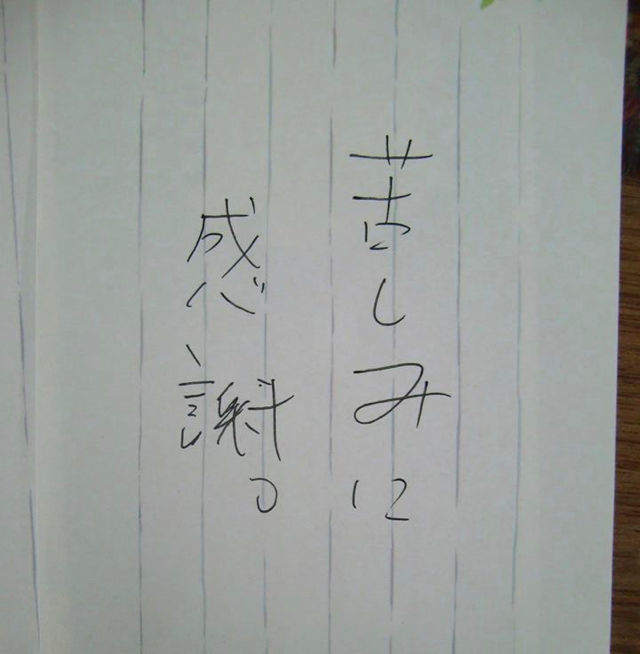 苦しみに
感謝。